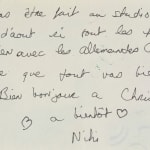 as être fait au studio
d'août ici tout les
ien avec les allemandes
e que tout vas bie
Bien bonjour a Chri
♡ a bientôt ♡
Niki